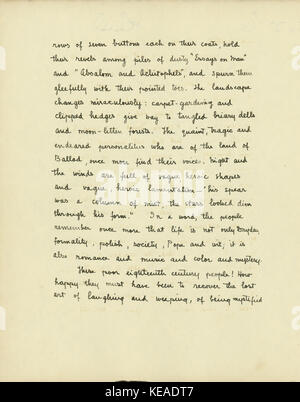 rows of seven buttons each on their coats, hold
their revels among piles of dusty "Essays on Man"
and "Absalom and Achitophels", and spurn them
gleefully with their pointed toes. The landscape
changes miraculously: carpet-gardening and
clipped hedges give way to tangled briary dells
and moon-litten forests. The quaint, tragic and
endeared personalities who are of the land of
Ballad, once more find their voices. Night and
the winds are full of vague heroic shapes
and vague, heroic lamentation — "his spear
was a column of mist, the stars looked dim
through his form." In a word, the people
remember once more that life is not only
formality, polish, society, Pope and wit; it is
also romance and music and color and mystery.
These poor eighteenth century people! How
happy they must have been to recover the lost
art of laughing and weeping, of being mystified
alamy
Image ID: KEADT7
www.alamy.com